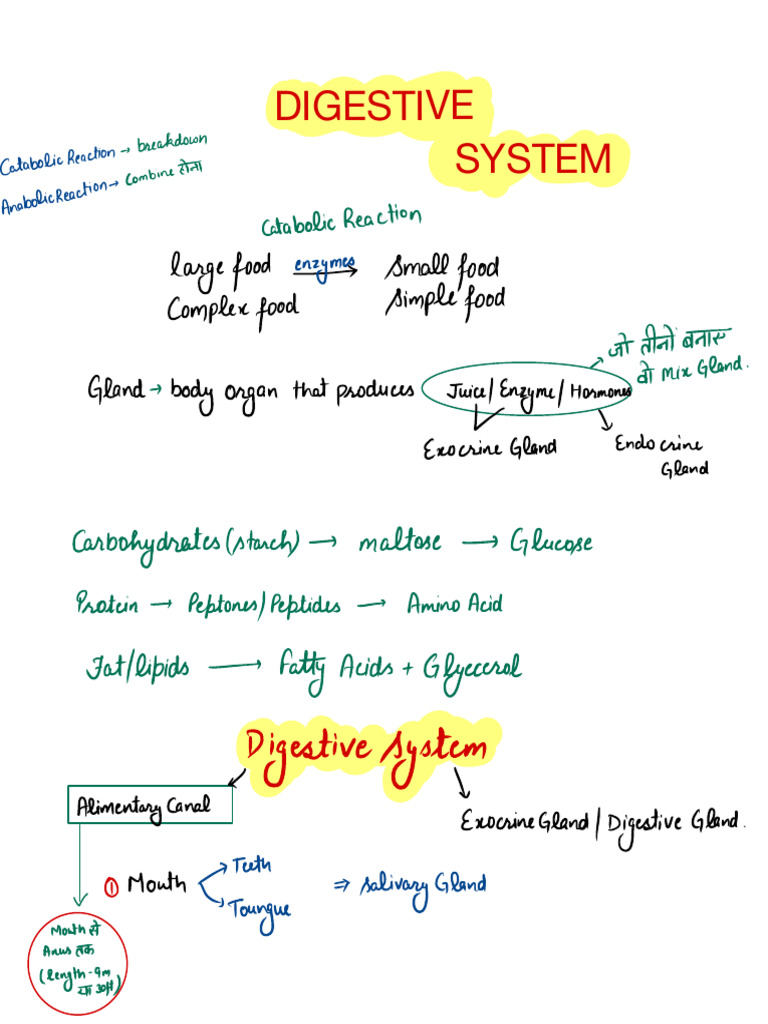 DIGESTIVE
SYSTEM
Catabolic Reaction → breakdown
Anabolic Reaction → Combine होना
Catabolic Reaction
large food enzymes → small food
Complex food simple food
जो तीनो बनाए
वो mix Gland.
Gland → body organ that produces Juice/Enzyme/Hormones
Exocrine Gland
Endocrine
Gland
Carbohydrates (starch) → maltose → Glucose
Protein → Peptones/Peptides → Amino Acid
Fat/lipids → Fatty Acids + Glycerol
Digestive system
Alimentary Canal
Exocrine Gland / Digestive Gland.
① Mouth Teeth
Toungue
⇒ salivary Gland
Mouth से
Anus तक
(length - 9m
या 30ft)